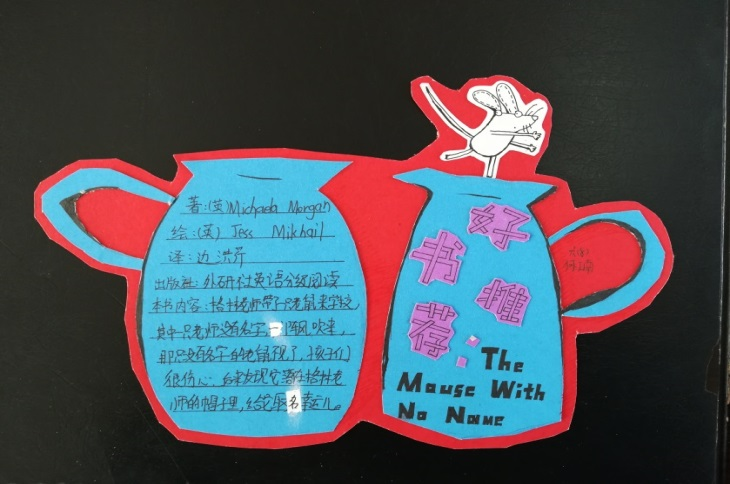 著:(英)Michaela Morgan
绘:(英) Jess Mikhail
译:边洪芹
出版社:外研社英语分级阅读
本书内容:格林老师带了只老鼠来学校,
其中一只老师没有名字,一阵风吹来,
那只没有名字的老鼠不见了,孩子们
很伤心,后来发现它落在格林老
师的帽子里,给它取名幸运儿。
好
书
推
荐:
The
Mouse With
No Name